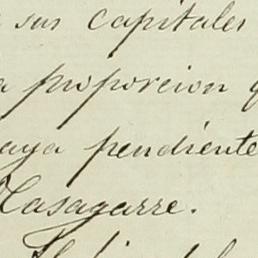 sus capitales
proporcion
aya pendiente
Casagarre.